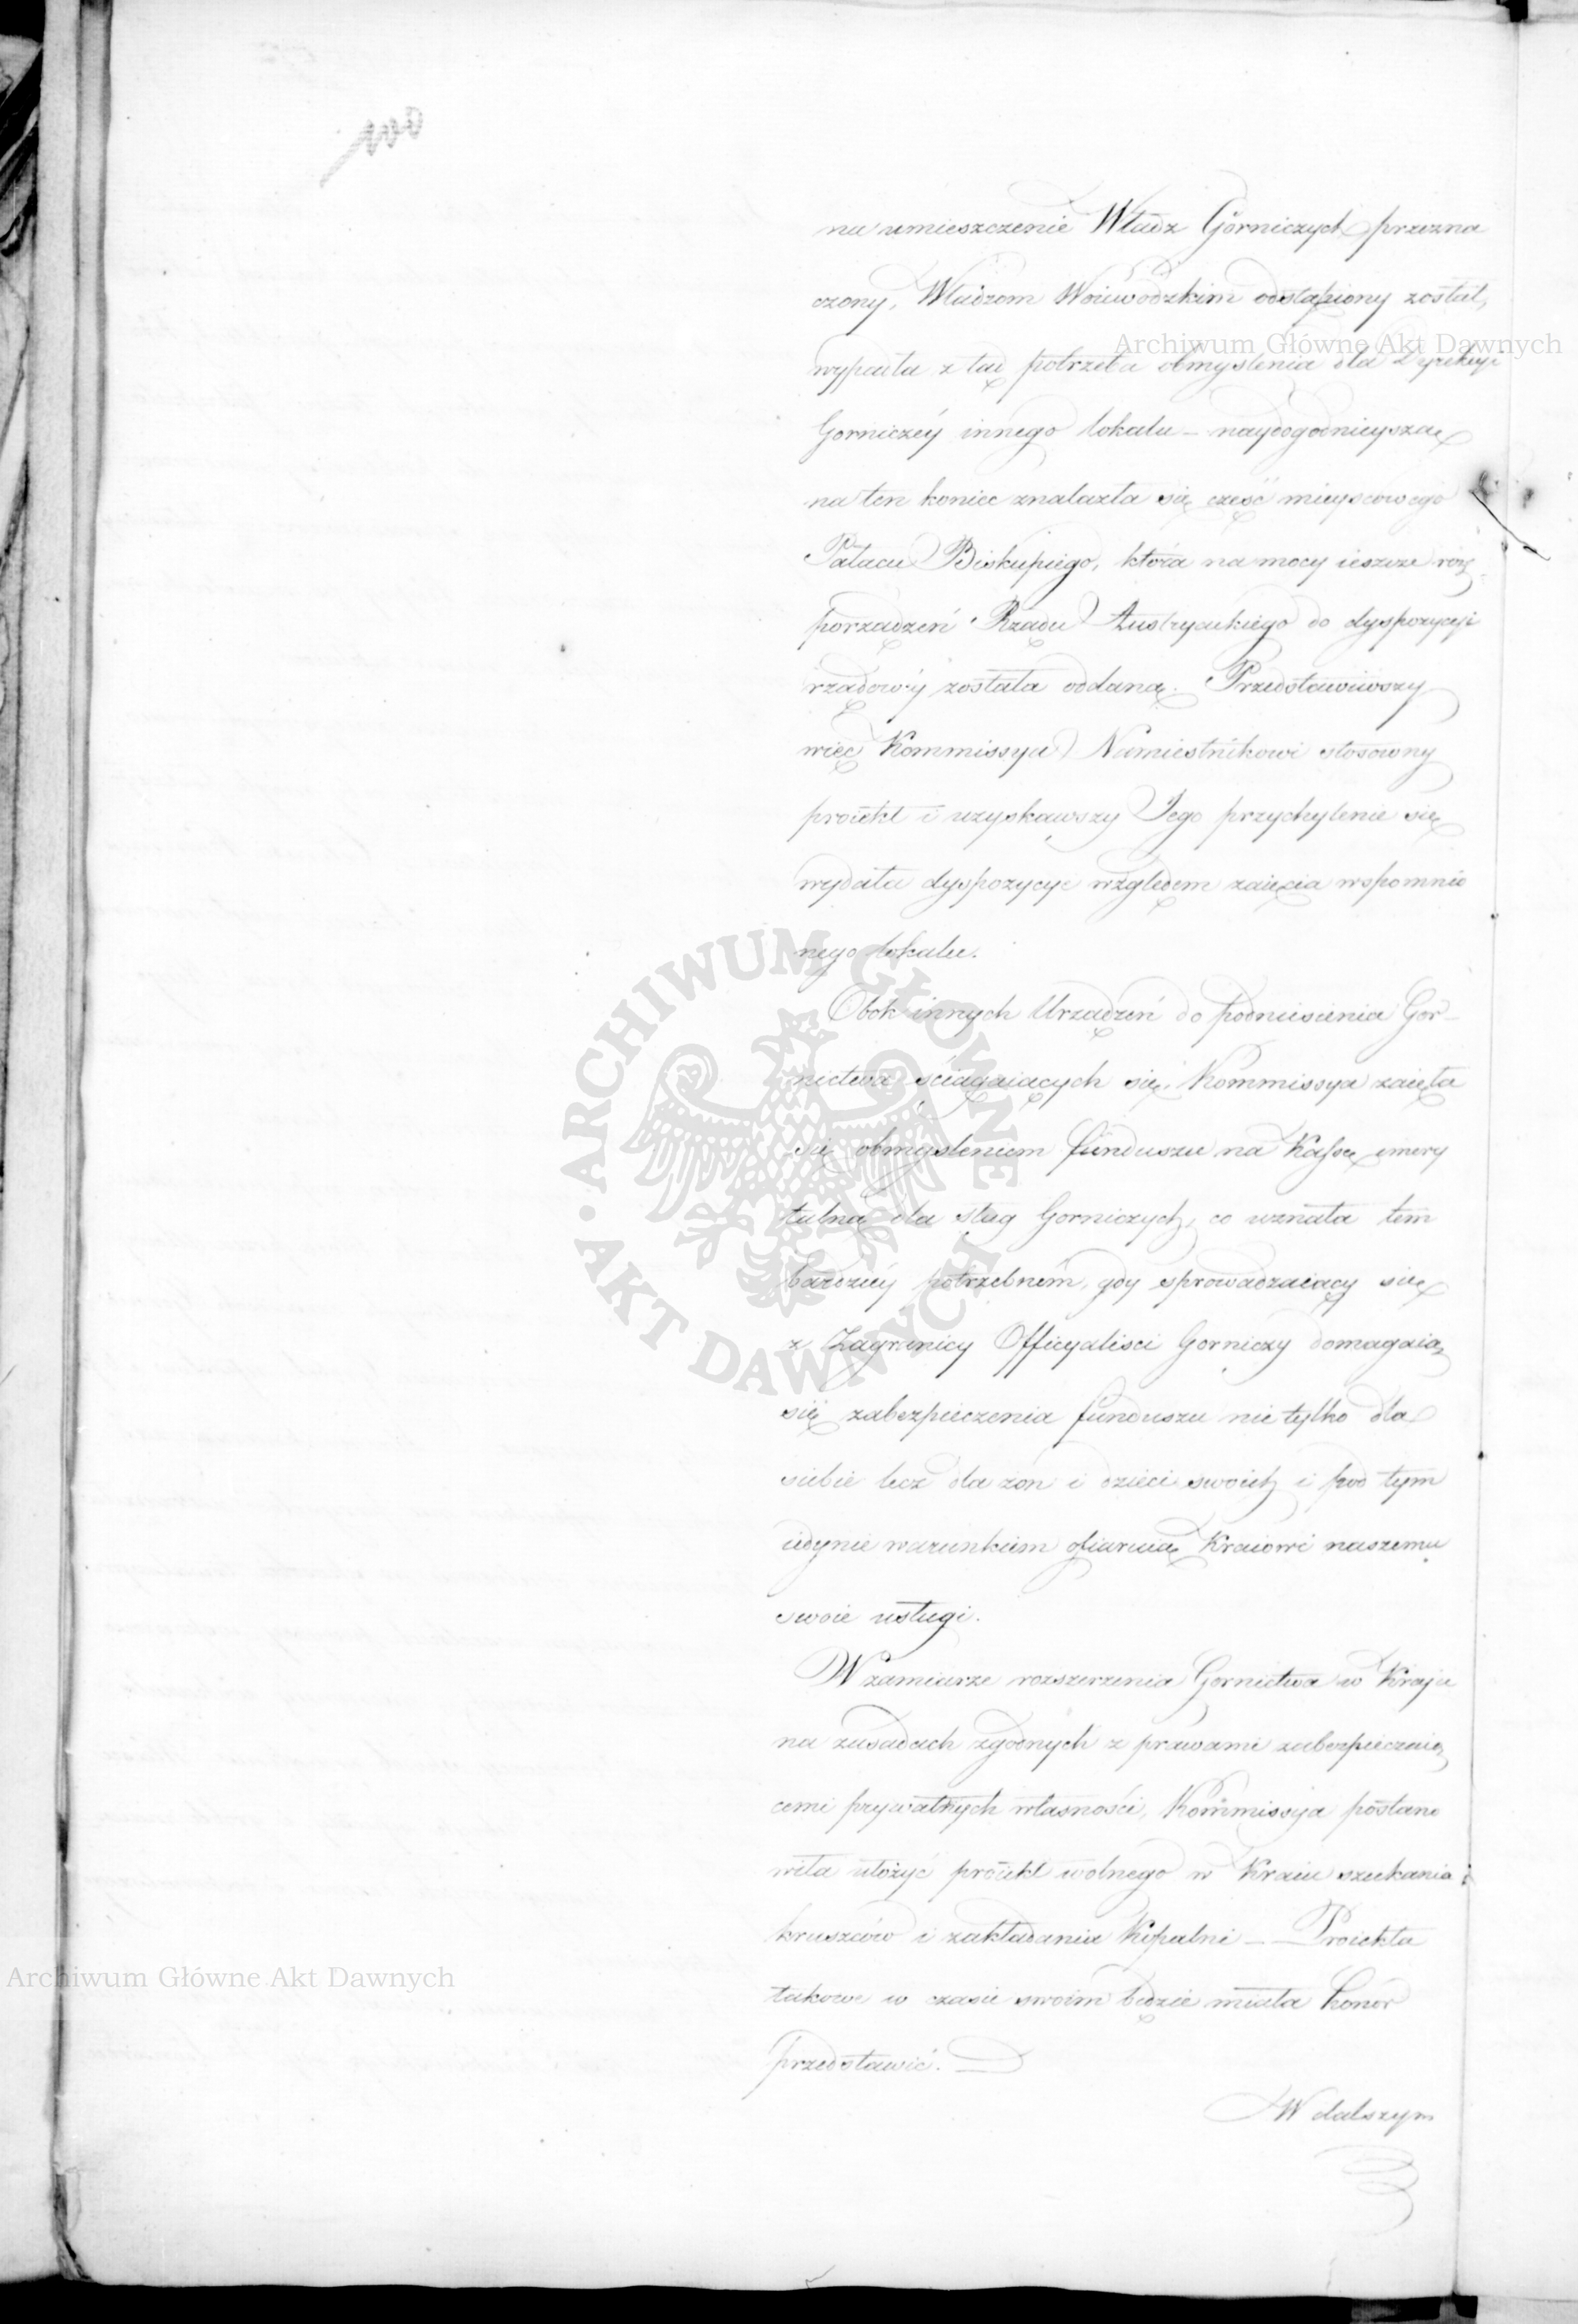 na umieszczenie Władz Górniczych przezna
czony, Władzom Woiewodzkim odstąpiony został,
Archiwum Główne Akt Dawnych
wypadła z tąd potrzeba obmyślenia dla Dyrekcyi
Gorniczéy innego lokalu – naydogodnieyszą
na ten koniec znalazła się część mieyscowego
Pałacu Biskupiego, która na mocy ieszcze roz-
porządzeń Rządu Austryackiego do dyspozycyi
rządowéy została oddaną. Przedstawiwszy
więc Kommissya Namiestnikowi stosowny
proiekt i uzyskawszy Jego przychylenie się
wydała dyspozycye względem zaięcia wspomnio
nego lokalu.
Obok innych Urządzeń do podniesienia Gor-
nictwa ściągaiących się, Kommissya zaięła
się obmyśleniem funduszu na Kassę emery
talną dla sług Gorniczych, co uznała tem
bardziéy potrzebném, gdy sprowadzaiący się
z Zagranicy Officyaliści Gorniczy domagaią
się zabezpieczenia funduszu nie tylko dla
siebie lecz dla żon i dzieci swoich i pod tym
iedynie warunkiem ofiaruią Kraiowi naszemu
swoie usługi.
W zamiarze rozszerzenia Gornictwa w Kraju
na zasadach zgodnych z prawami zabezpieczaią
cemi prywatnych własności, Kommissya postano
wiła ułożyć proiekt wolnego w Kraiu szukania
kruszców i zakładania Kopalni – Proiekta
Archiwum Główne Akt Dawnych
takowe w czasie swoim będzie miała honor
przedstawić.
W dalszym
ARCHIWUM GŁÓWNE
AKT DAWNYCH